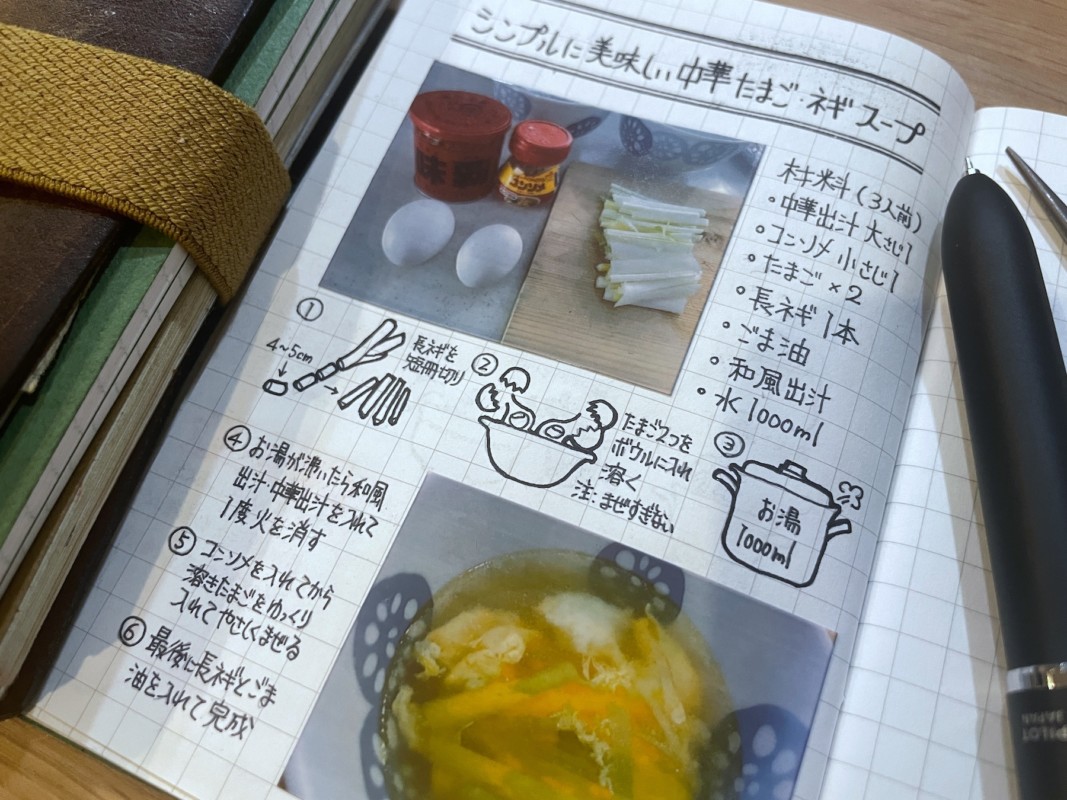 シンプルに美味しい中華たまご・ネギスープ
味
コンソメ
材料(3人前)
・中華出汁 大さじ1
・コンソメ 小さじ1
・たまご×2
・長ネギ 1本
・ごま油
・和風出汁
・水 1000ml
①
4~5cm
長ネギを
短冊切り
②
たまご2つを
ボウルに入れ
溶く
注:まぜすぎない
③
お湯
1000ml
④お湯が沸いたら和風
出汁・中華出汁を入れて
1度火を消す
⑤コンソメを入れてから
溶きたまごをゆっくり
入れてやさしくまぜる
⑥最後に長ネギとごま
油を入れて完成
PILOT
JAPAN